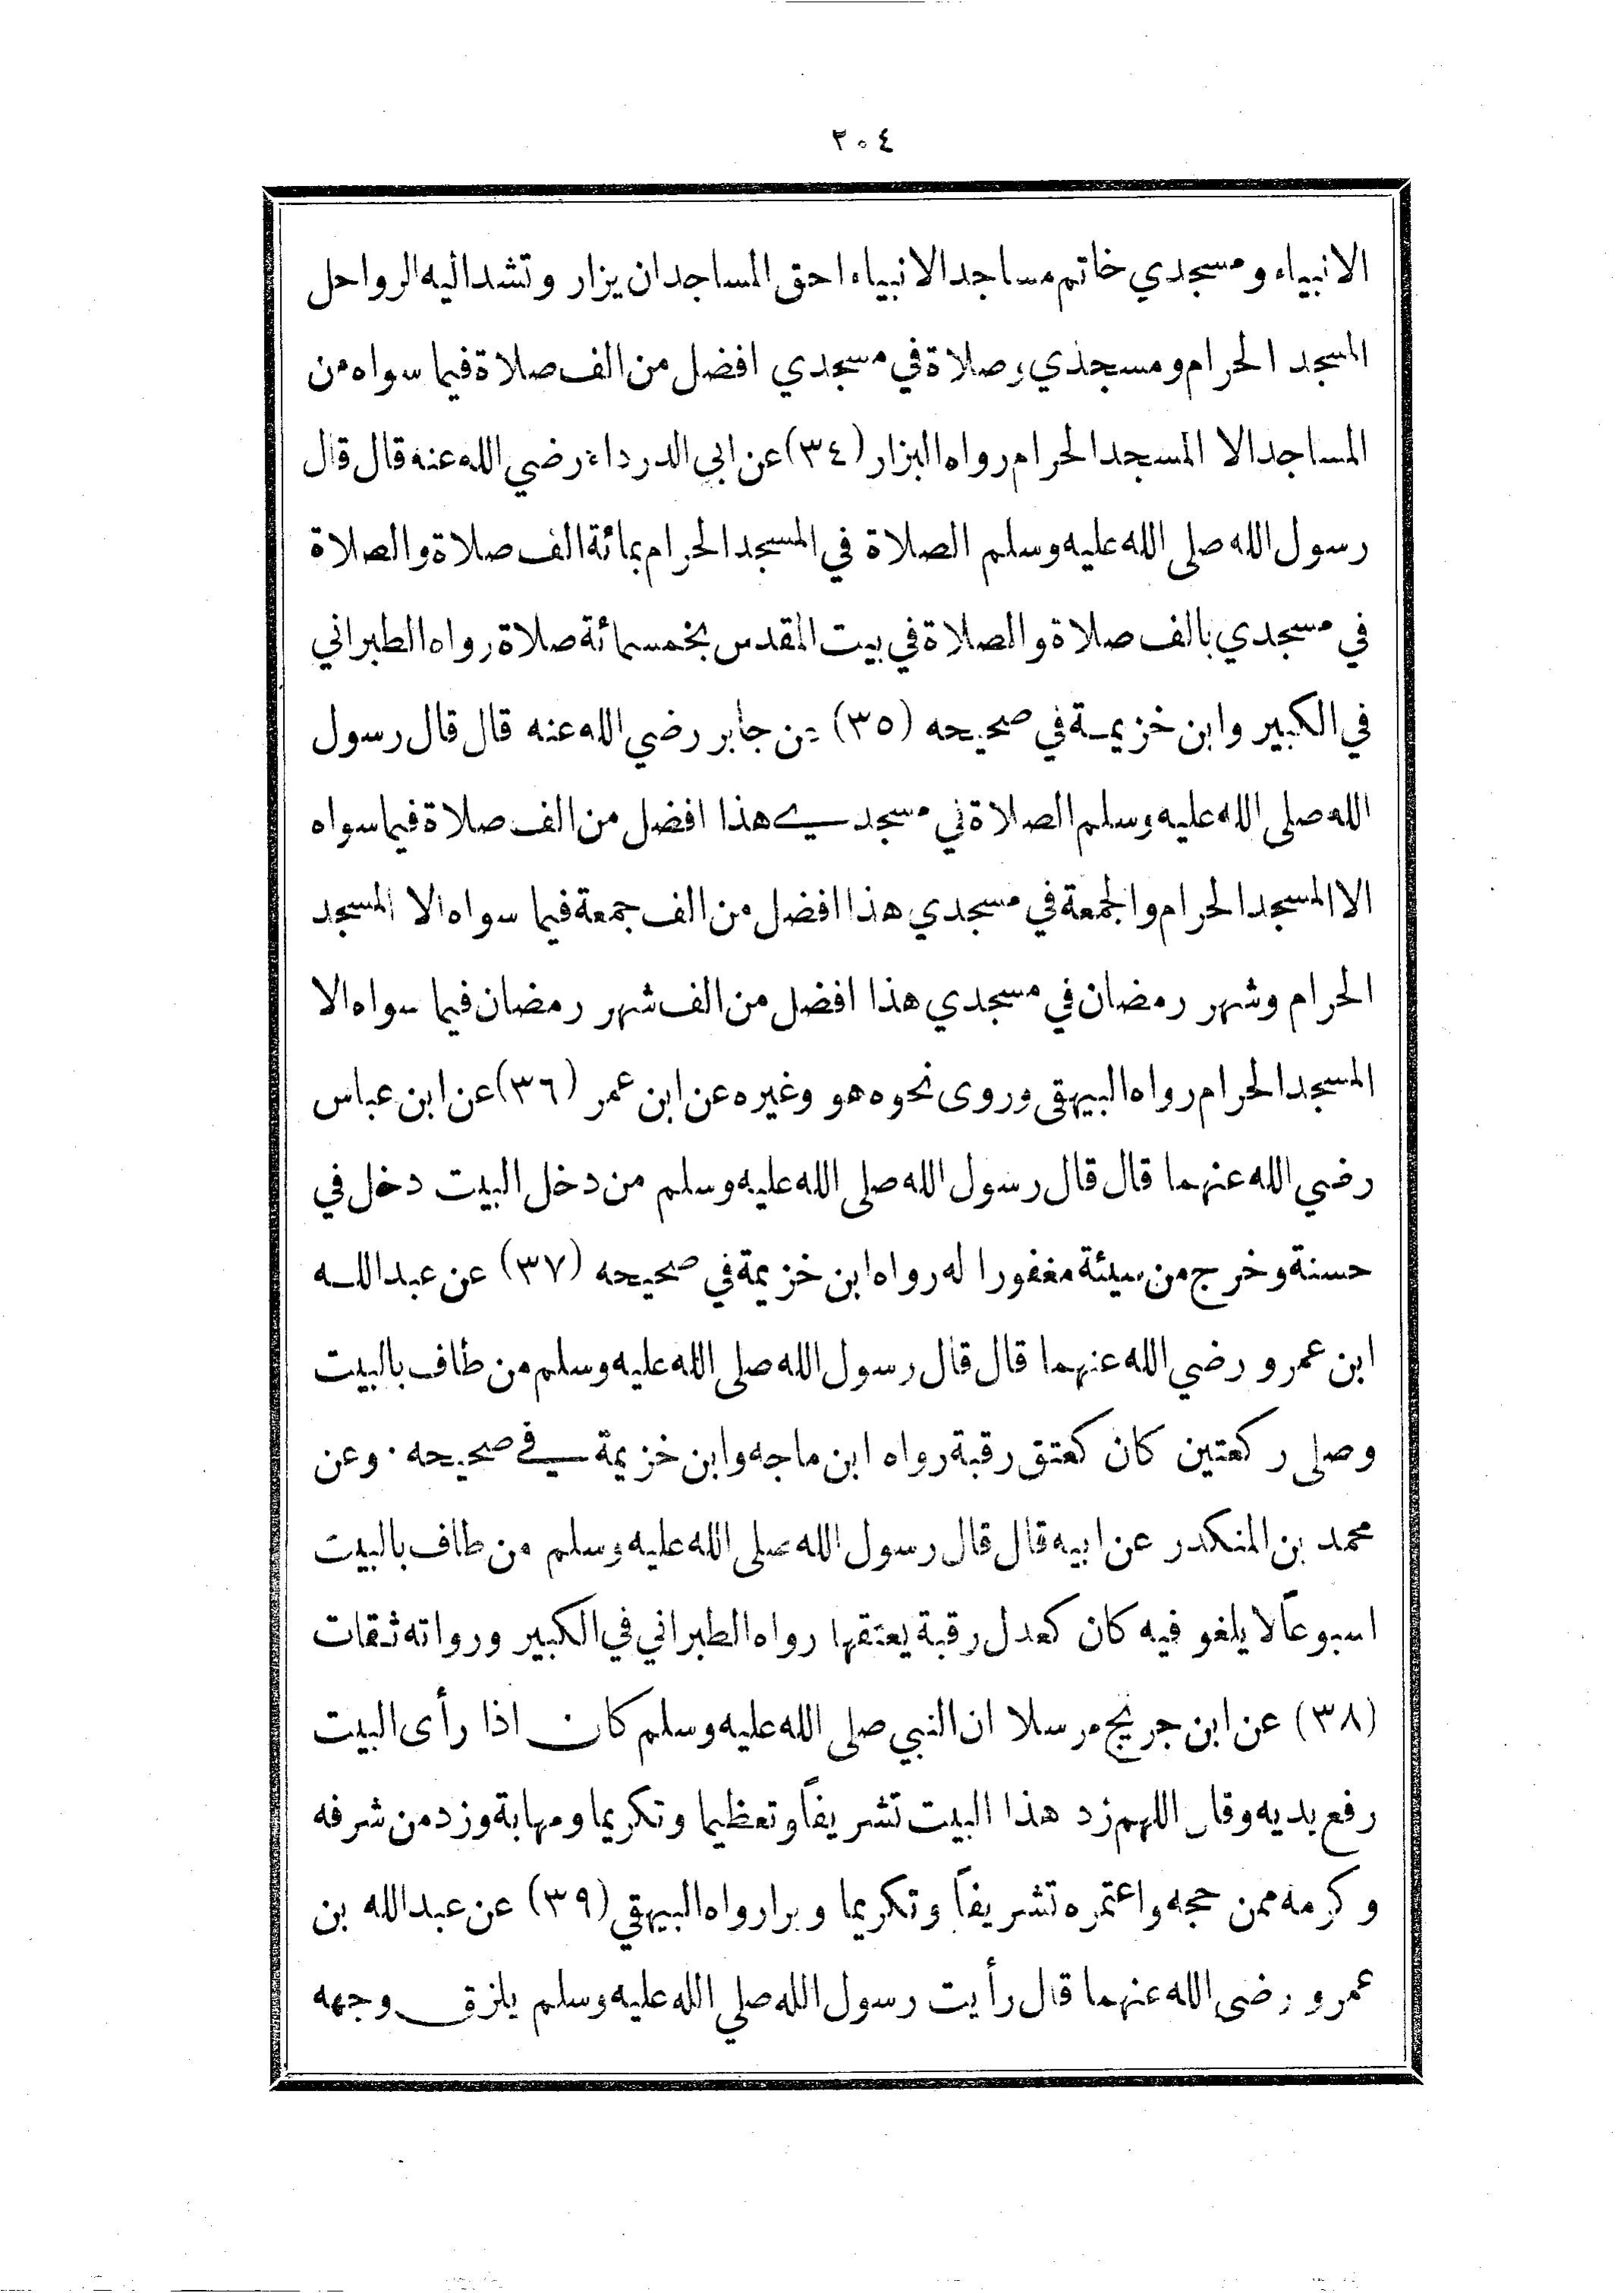 ٢٠٤
الانبياء ومسجدي خاتم مساجد الانبياء احق المساجد ان يزار وتشد اليه الرواحل
المسجد الحرام ومسجدي وصلاة في مسجدي افضل من الف صلاة فيما سواه من
المساجد الا المسجد الحرام رواه البزار (٣٤) عن ابي الدرداء رضي الله عنه قال قال
رسول الله صلى الله عليه وسلم الصلاة في المسجد الحرام بمائة الف صلاة والصلاة
في مسجدي بالف صلاة والصلاة في بيت المقدس بخمسمائة صلاة رواه الطبراني
في الكبير وابن خزيمة في صحيحه (٣٥) عن جابر رضي الله عنه قال قال رسول
الله صلى الله عليه وسلم الصلاة في مسجدي هذا افضل من الف صلاة فيما سواه
الا المسجد الحرام والجمعة في مسجدي هذا افضل من الف جمعة فيما سواه الا المسجد
الحرام وشهر رمضان في مسجدي هذا افضل من الف شهر رمضان فيما سواه الا
المسجد الحرام رواه البيهقى وروى نحوه هو وغيره عن ابن عمر (٣٦) عن ابن عباس
رضي الله عنهما قال قال رسول الله صلى الله عليه وسلم من دخل البيت دخل في
حسنة وخرج من سيئة مغفورا له رواه ابن خزيمة في صحيحه (٣٧) عن عبد الله
ابن عمرو رضي الله عنهما قال قال رسول الله صلى الله عليه وسلم من طاف بالبيت
وصلى ركعتين كان كعتق رقبة رواه ابن ماجه وابن خزيمة في صحيحه · وعن
محمد بن المنكدر عن ابيه قال قال رسول الله صلى الله عليه وسلم من طاف بالبيت
اسبوعاً لا يلغو فيه كان كعدل رقبة يعتقها رواه الطبراني في الكبير ورواته ثقات
(٣٨) عن ابن جريج مرسلا ان النبي صلى الله عليه وسلم كان اذا رأى البيت
رفع يديه وقال اللهم زد هذا البيت تشريفاً وتعظيما وتكريما ومهابة وزد من شرفه
وكرمه ممن حجه واعتمره تشريفاً وتكريما وبرا رواه البيهقي (٣٩) عن عبد الله بن
عمرو رضى الله عنهما قال رأيت رسول الله صلي الله عليه وسلم يلزق وجهه